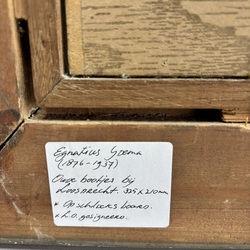 Egnatius Ydema
(1876-1937)
Oude bootjes bij
Loosdrecht. 325 x 210 mm
* Op schildersboard.
* L.O. gesigneerd.